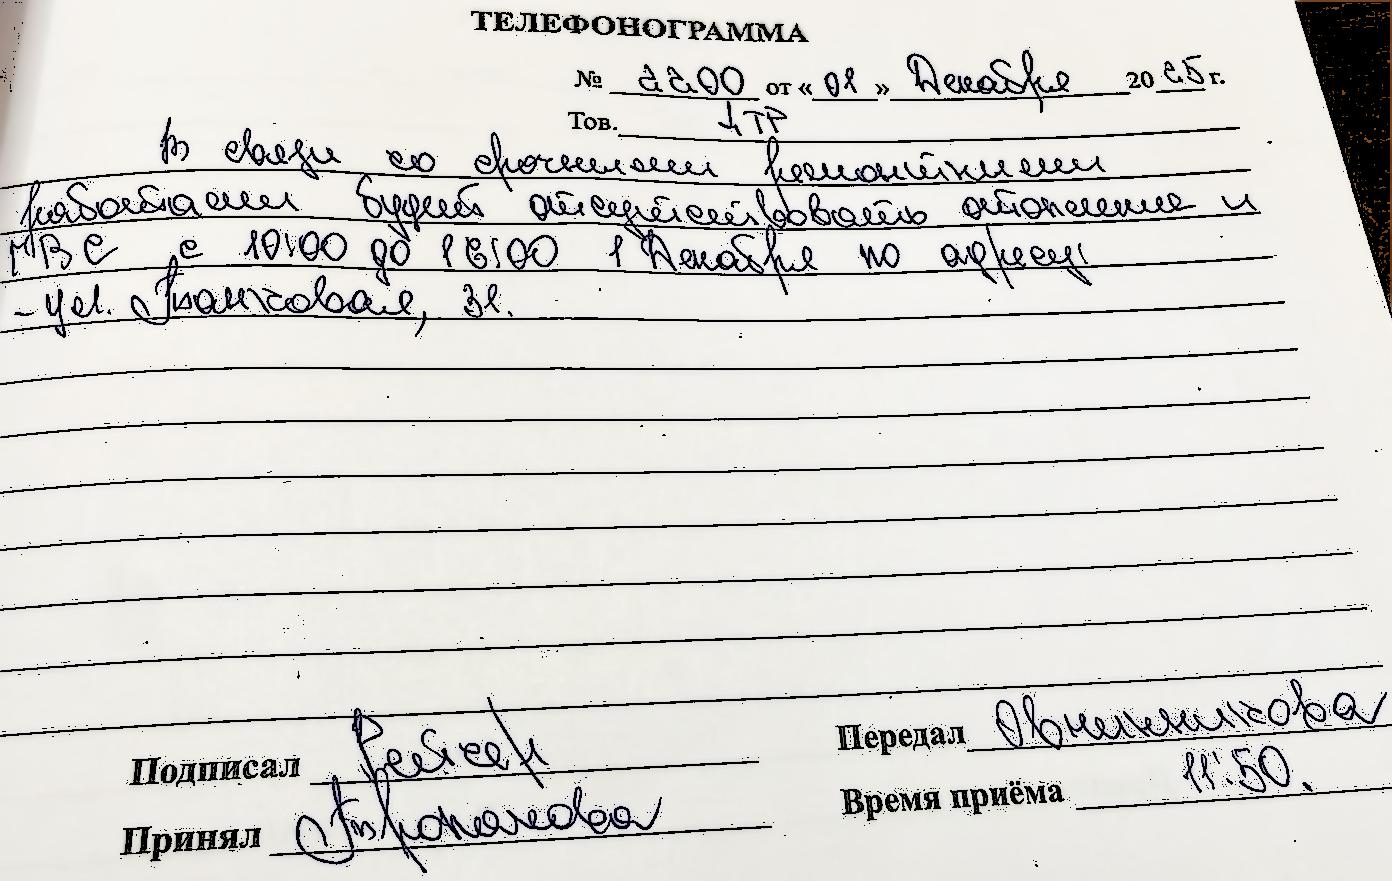 ТЕЛЕФОНОГРАММА
№ 2200 от «01» Декабря 2025 г.
Тов. ЦТР
В связи со срочными ремонтными
работами будет отсутствовать отопление и
ГВС с 10:00 до 16:00 1 Декабря по адресу:
- ул. Танковая, 31.
Подписал
Передал Овчинникова
Принял
Время приёма 11:50.